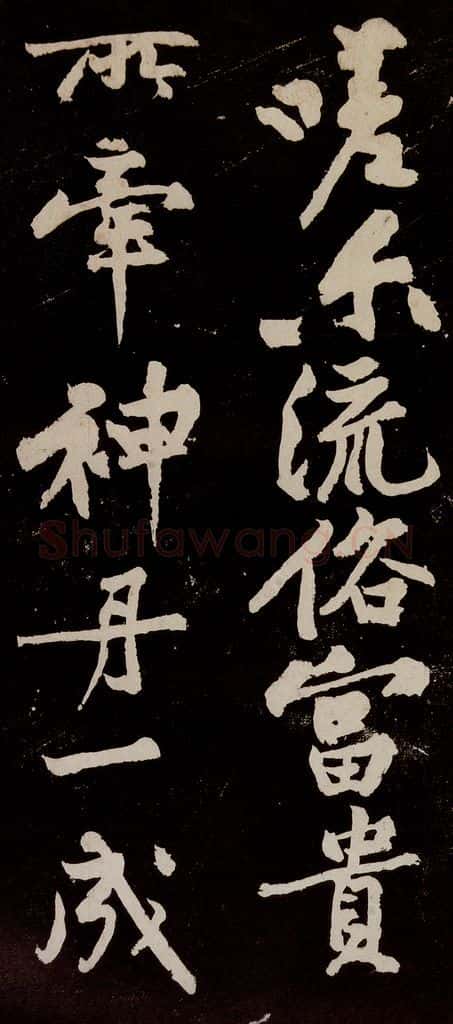 嗟尔流俗富貴
所牽神丹一成
Shufawang.CN